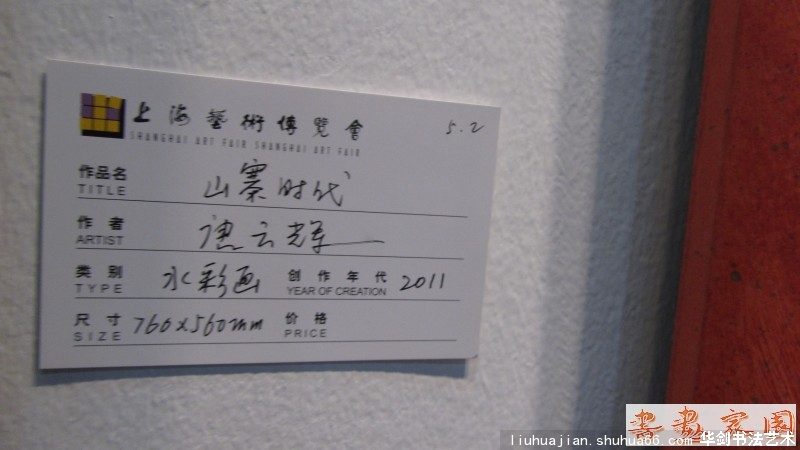 上海藝術博覽會 5.2
SHANGHAI ART FAIR SHANGHAI ART FAIR
作品名 山寨时代
TITLE
作者 云辉
ARTIST
类别 水彩画 创作年代 2011
TYPE YEAR OF CREATION
尺寸 760x560mm 价格
SIZE PRICE
書畫家園
liuhuajian.shuhua66.com 华剑书法艺术